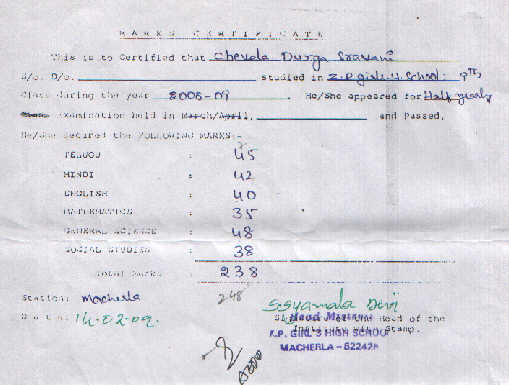 MARKS CERTIFICATE
This is to Certified that Chevala Durga Sravani
S/o. D/o. studied in Z.P. girls H School
Class during the year 2008-09. He/She appeared for Half yearly
examination held in March/April, and Passed.
He/She Secured the FOLLOWING MARKS:-
TELUGU : 45
HINDI : 42
ENGLISH : 40
MATHEMATICS : 35
GENERAL SCIENCE : 48
SOCIAL STUDIES : 38
TOTAL MARKS : 238
248
Station: Macherla
Date: 14-02-09.
S. Syamala Devi
Head of the
Head Mistress
Z.P. GIRL'S HIGH SCHOOL
with Stamp.
MACHERLA - 522426